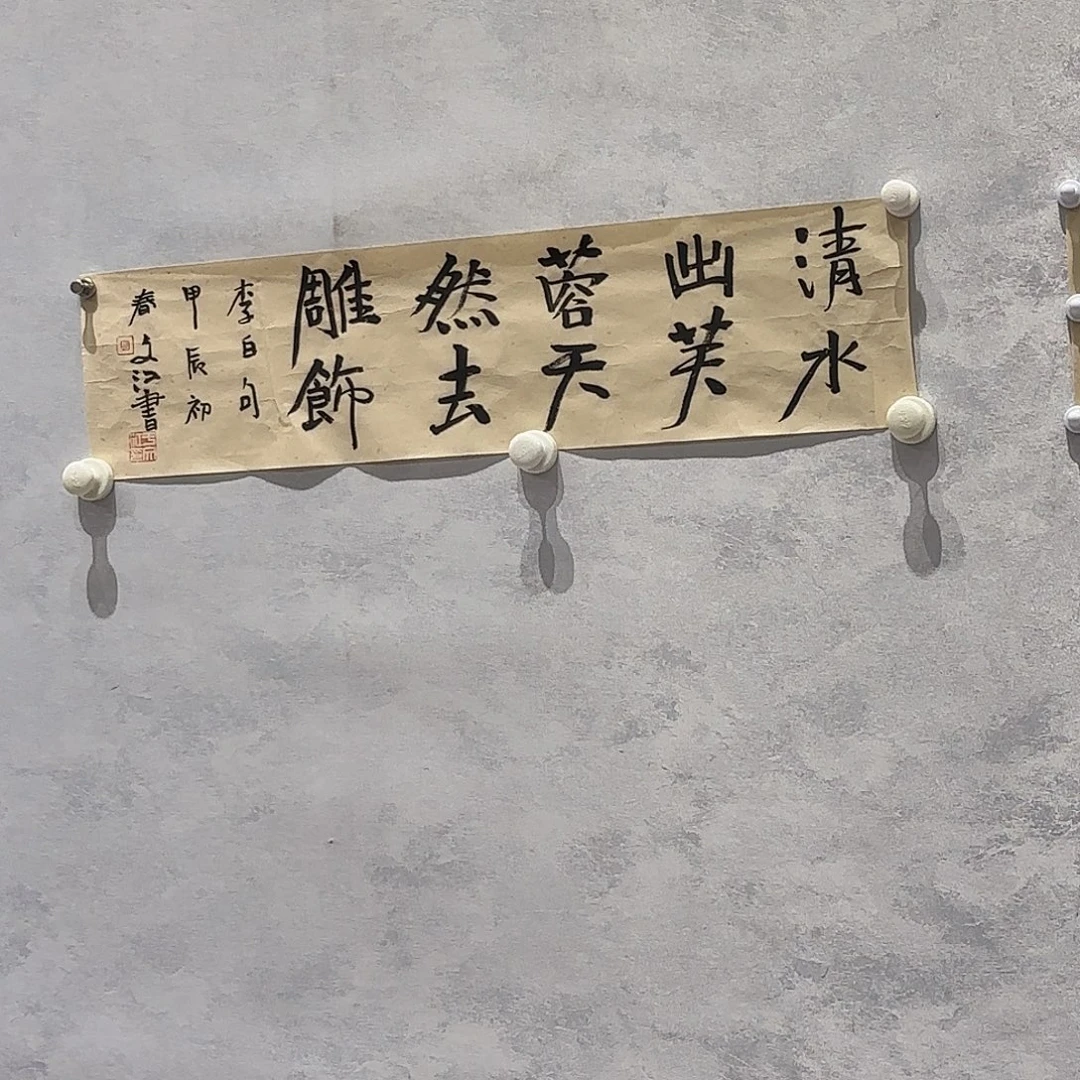 清水
出芙
蓉天
然去
雕飾
李白句
甲辰初
春文江書